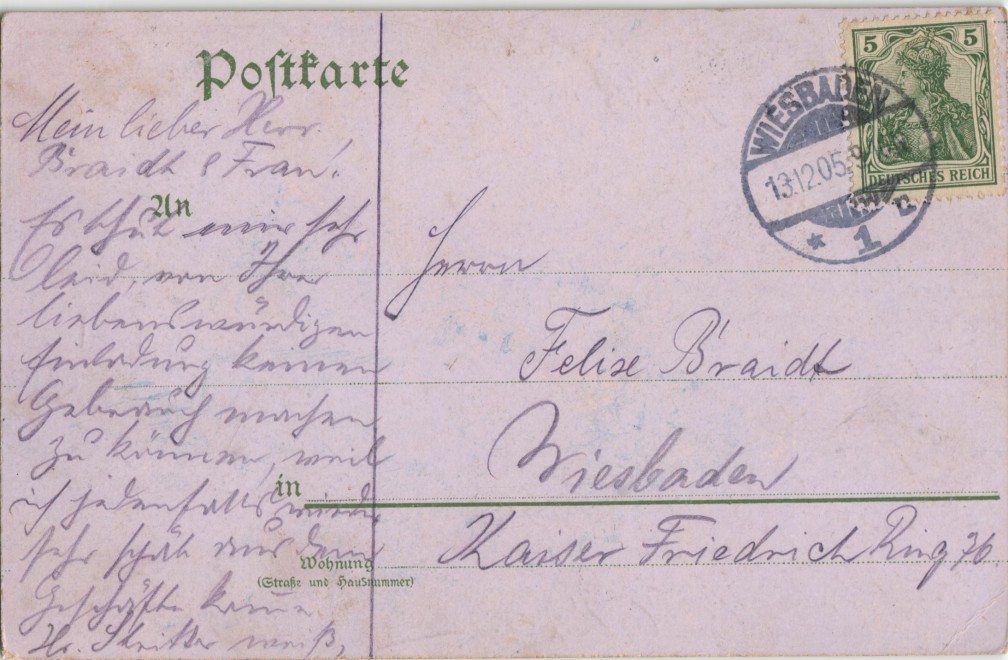 Postkarte
Mein lieber Herr
Braidt & Frau!
An
Es thut mir sehr
leid, von Ihrer
liebenswürdigen
Einladung keinen
Gebrauch machen
zu können, weil
ich jedenfalls wieder
sehr spät aus dem
Geschäfte komme.
Hr. Stritter weiß,
5 5
DEUTSCHES REICH
WIESBADEN
13.12.05.
* 1 c
Herrn
Felix Braidt
Wiesbaden
in
Kaiser Friedrich Ring 76.
Wohnung
(Straße und Hausnummer)